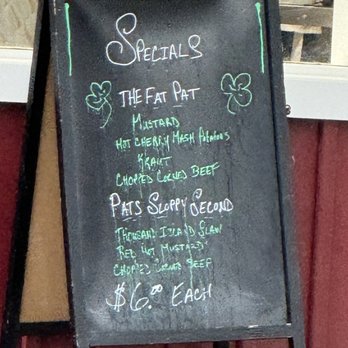 SPECIALS
THE FAT PAT
MUSTARD
HOT CHERRY MASH POTATOES
KRAUT
CHOPPED CORNED BEEF
PATS SLOPPY SECOND
THOUSAND ISLAND SLAW
RED HOT MUSTARD
CHOPPED CORNED BEEF
$6.00 EACH